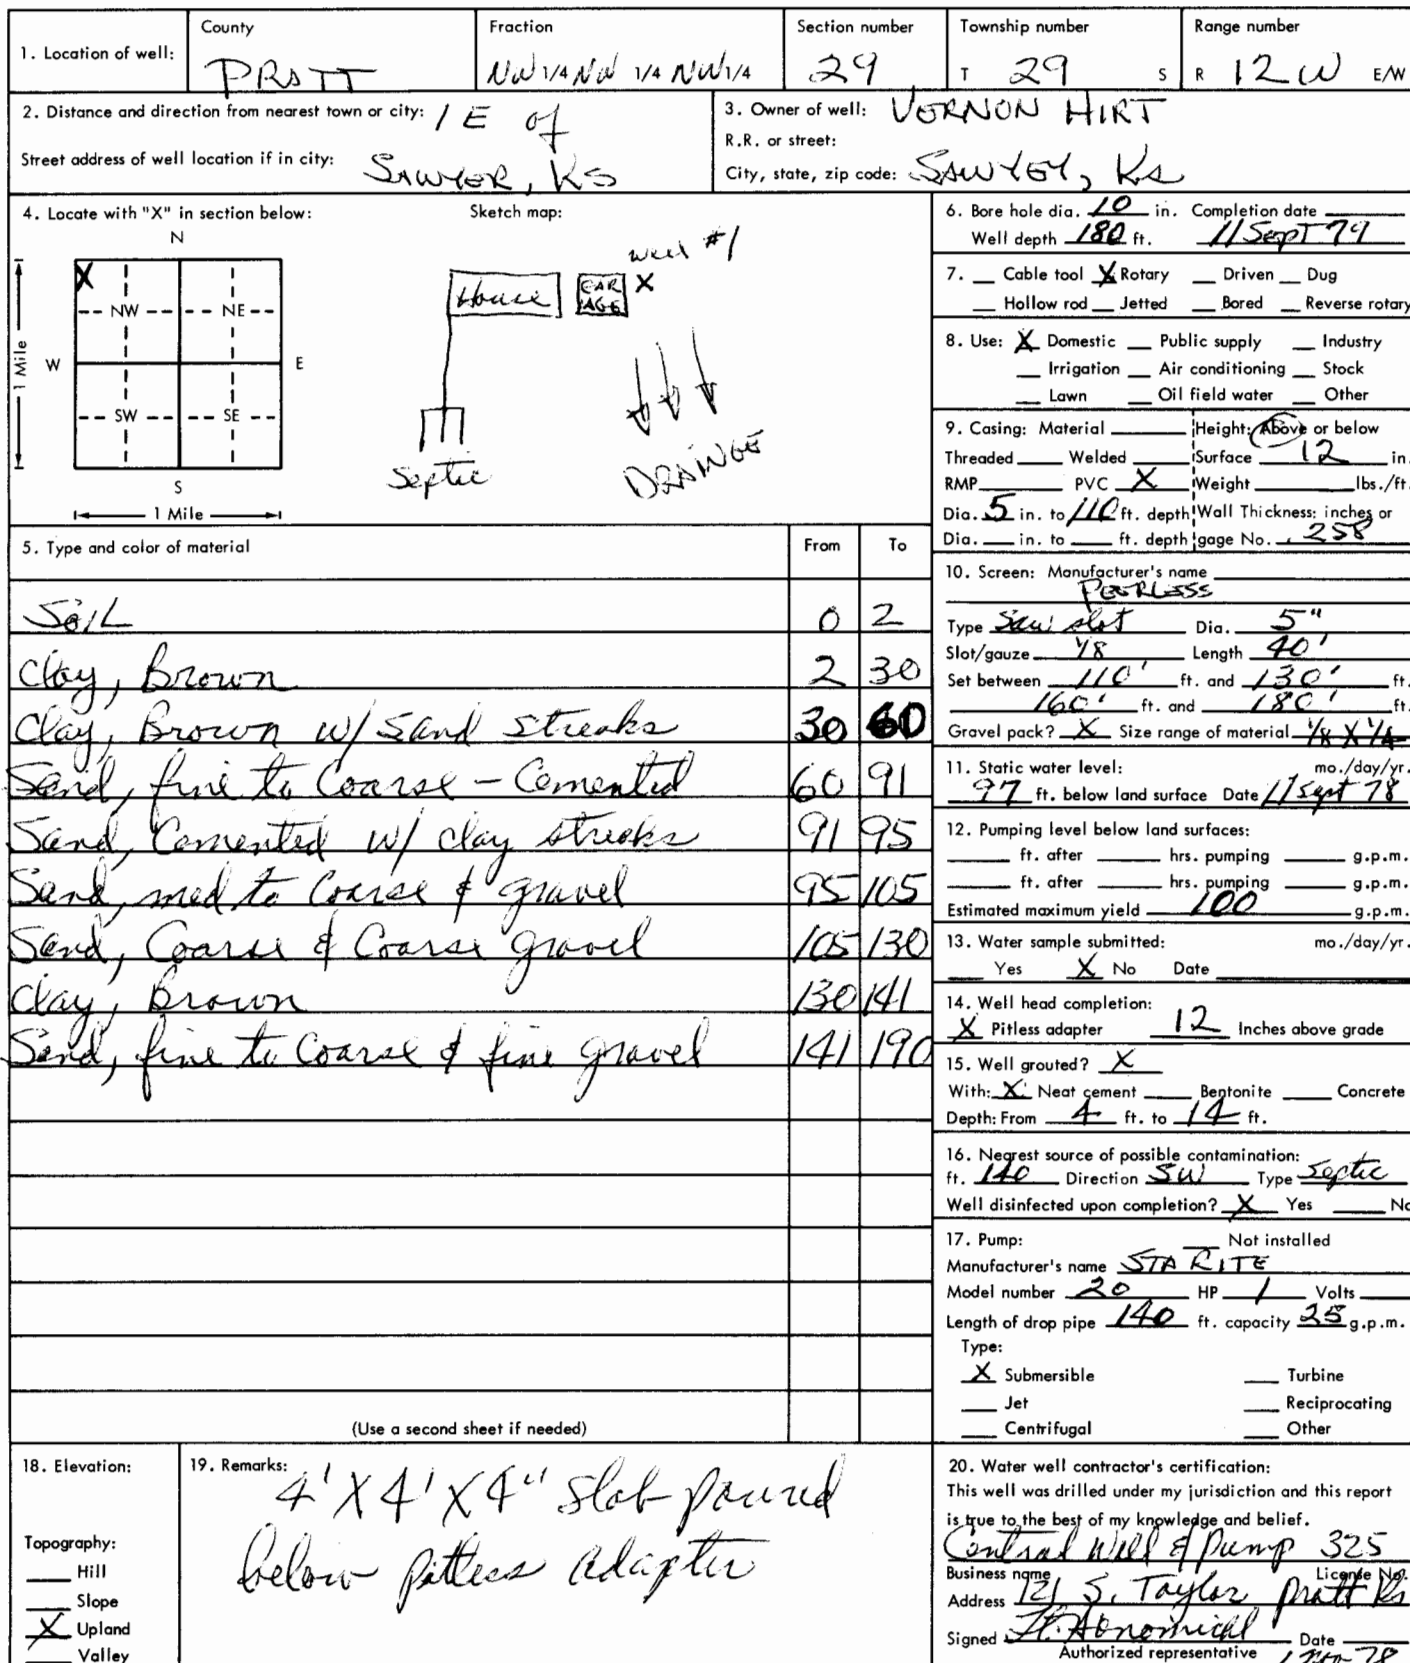 County Fraction Section number Township number Range number
1. Location of well: PRATT NW 1/4 NW 1/4 NW 1/4 29 T 29 S R 12 W E/W
2. Distance and direction from nearest town or city: 1 E of
Street address of well location if in city: SAWYER, KS
3. Owner of well: VERNON HIRT
R.R. or street:
City, state, zip code: SAWYEY, Ks
4. Locate with "X" in section below:
N
X
NW NE
W E
SW SE
S
1 Mile
1 Mile
Sketch map:
well #1
House GAR AGE X
Septic
DRAINGE
5. Type and color of material From To
Soil 0 2
Clay, Brown 2 30
Clay, Brown w/ Sand streaks 30 60
Sand, fine to Coarse - Cemented 60 91
Sand, Cemented w/ clay streaks 91 95
Sand, med to Coarse & gravel 95 105
Sand, Coarse & Coarse gravel 105 130
Clay, Brown 130 141
Sand, fine to Coarse & fine gravel 141 190
(Use a second sheet if needed)
6. Bore hole dia. 10 in. Completion date
Well depth 180 ft. 11 Sept 79
7. Cable tool X Rotary Driven Dug
Hollow rod Jetted Bored Reverse rotary
8. Use: X Domestic Public supply Industry
Irrigation Air conditioning Stock
Lawn Oil field water Other
9. Casing: Material Height: Above or below
Threaded Welded Surface 12 in.
RMP PVC X Weight lbs./ft.
Dia. 5 in. to 110 ft. depth Wall Thickness: inches or
Dia. in. to ft. depth gage No. .258
10. Screen: Manufacturer's name
PEERLESS
Type Saw slot Dia. 5"
Slot/gauze 1/8 Length 40'
Set between 110' ft. and 130' ft.
160' ft. and 180' ft.
Gravel pack? X Size range of material 1/8 X 1/4
11. Static water level: mo./day/yr.
97 ft. below land surface Date 11 Sept 78
12. Pumping level below land surfaces:
ft. after hrs. pumping g.p.m.
ft. after hrs. pumping g.p.m.
Estimated maximum yield 100 g.p.m.
13. Water sample submitted: mo./day/yr.
Yes X No Date
14. Well head completion:
X Pitless adapter 12 Inches above grade
15. Well grouted? X
With: X Neat cement Bentonite Concrete
Depth: From 4 ft. to 14 ft.
16. Nearest source of possible contamination:
ft. 140 Direction SW Type Septic
Well disinfected upon completion? X Yes No
17. Pump: Not installed
Manufacturer's name STA RITE
Model number 20 HP 1 Volts
Length of drop pipe 140 ft. capacity 25 g.p.m.
Type:
X Submersible Turbine
Jet Reciprocating
Centrifugal Other
18. Elevation:
Topography:
Hill
Slope
X Upland
Valley
19. Remarks: 4' X 4' X 4" slab poured
below pitless adapter
20. Water well contractor's certification:
This well was drilled under my jurisdiction and this report
is true to the best of my knowledge and belief.
Central Well & Pump 325
Business name License No.
Address 121 S. Taylor Pratt Ks
Signed Date
Authorized representative 1 Nov 78